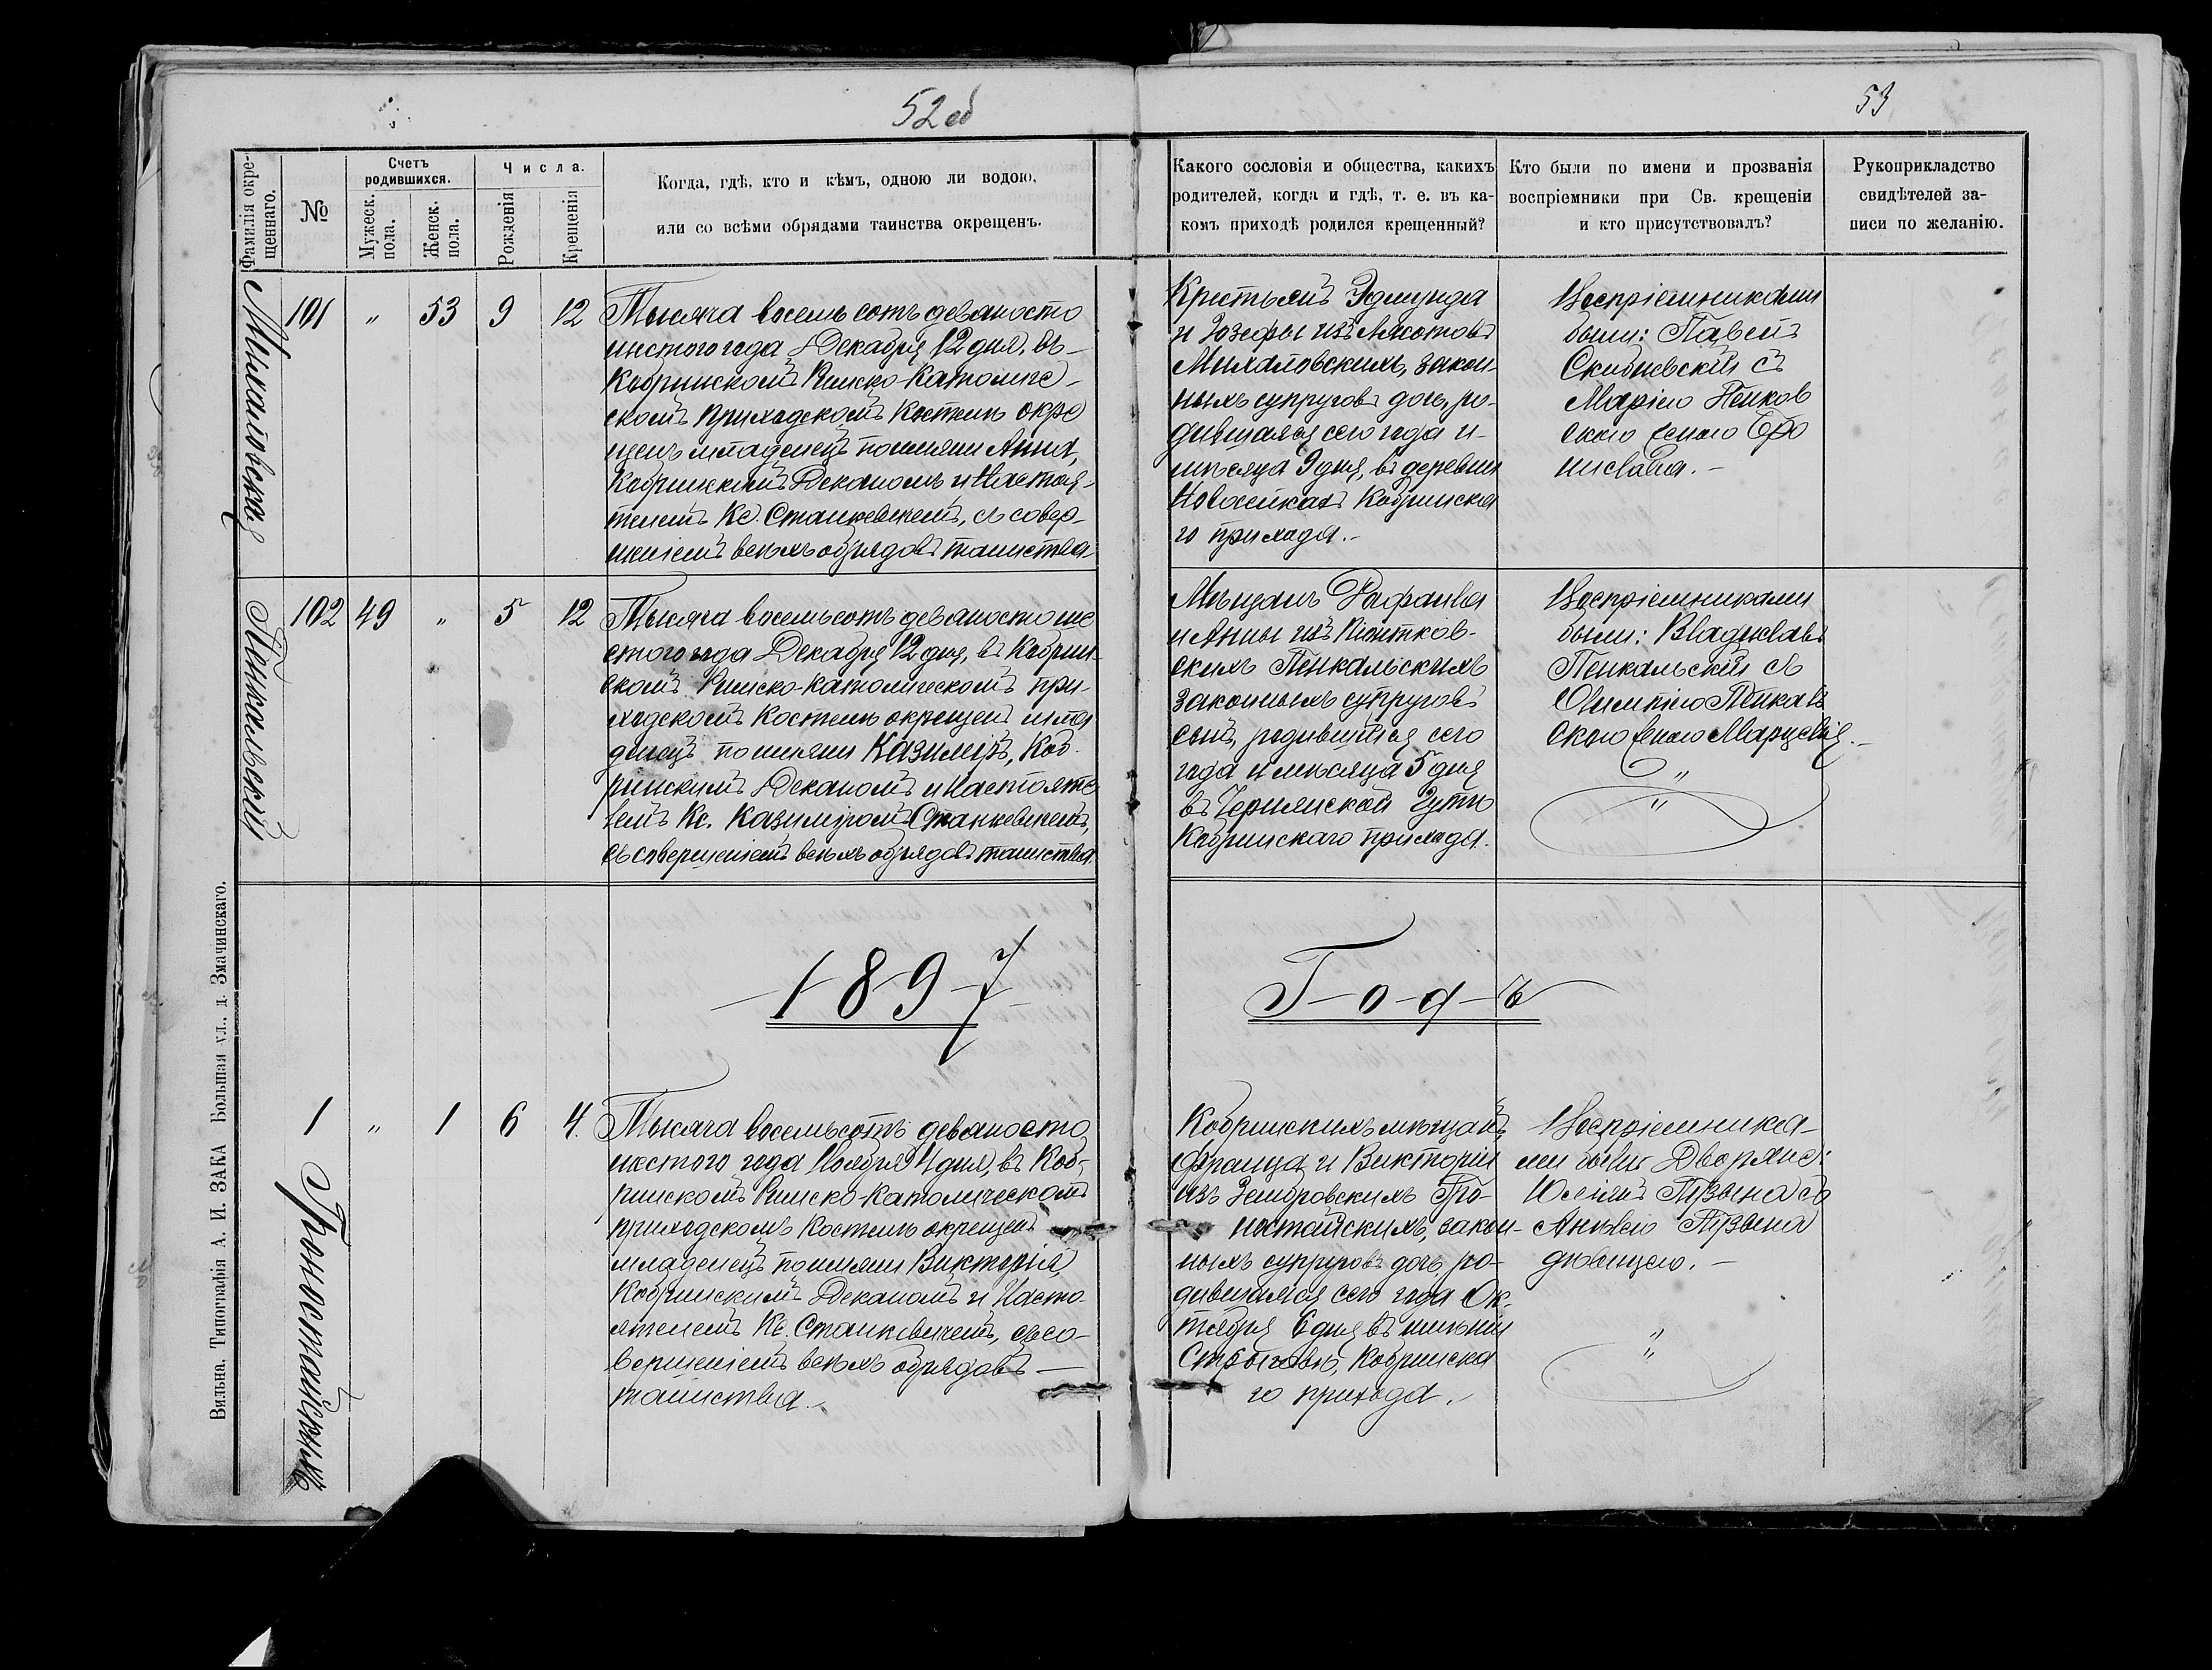 52 об
53
Фамилія окре-
щеннаго.
№
Счетъ
родившихся.
Мужеск.
пола.
Женск.
пола.
Числа.
Рожденія
Крещенія
Когда, гдѣ, кто и кѣмъ, одною ли водою,
или со всѣми обрядами таинства окрещенъ.
Какого сословія и общества, какихъ
родителей, когда и гдѣ, т. е. въ ка-
комъ приходѣ родился крещенный?
Кто были по имени и прозванія
воспріемники при Св. крещеніи
и кто присутствовалъ?
Рукоприкладство
свидѣтелей за-
писи по желанію.
Михаловская
101 " 53 9 12
Тысяча восемь сотъ девяносто
шестого года Декабря 12 дня, въ
Кобринскомъ Римско-Католиче-
скомъ Приходскомъ Костелѣ окре
щенъ младенецъ по имени Анна,
Кобринскимъ Деканомъ и Настоя-
телемъ Кс. Станкевичемъ, съ совер-
шеніемъ всѣхъ обрядовъ таинства
Крестьянъ Эдмунда
и Іозефы изъ
Михаловскихъ, закон-
ныхъ супруговъ дочь, ро-
дившаяся сего года и
мѣсяца 9 дня, въ деревни
Новоселкахъ Кобринска
го прихода.-
Воспріемниками
были: Павелъ
Скибневскій съ
Маріею Пенков
скою женою Бро
нислава.-
Пенкальскій
102 49 " 5 12
Тысяча восемьсотъ девяносто ше
стого года Декабря 12 дня, въ Кобрин-
скомъ Римско-Католическомъ При-
ходскомъ Костелѣ окрещенъ мла
денецъ по имени Казиміръ, Коб-
ринскимъ Деканомъ и Настояте
лемъ Кс. Казиміромъ Станкевичемъ,
съ совершеніемъ всѣхъ обрядовъ таинства.
Мѣщанъ Рафаила
и Анны изъ Піотров-
скихъ Пенкальскихъ
законныхъ супруговъ
сынъ, родившійся сего
года и мѣсяца 5 дня
въ Чернянской Гутѣ
Кобринскаго прихода.
Воспріемниками
были: Владиславъ
Пенкальскій съ
Олимпіею Пенков
скою женою
"
"
1897
Годъ
Гроностайскихъ
1 " 1 6 4.
Тысяча восемьсотъ девяносто
шестого года Ноября 4 дня, въ Коб-
ринскомъ Римско-Католическомъ
приходскомъ Костелѣ окрещенъ
младенецъ по имени Викторія,
Кобринскимъ Деканомъ и Насто-
ятелемъ Кс. Станкевичемъ, съ со-
вершеніемъ всѣхъ обрядовъ
таинства.-
Кобринскихъ мѣщанъ
Франца и Викторіи
изъ Гро-
ностайскихъ, закон-
ныхъ супруговъ дочь, ро-
дившаяся сего года Ок-
тября 6 дня въ имѣніи
Стрѣгове, Кобринска
го прихода.-
Воспріемника-
ми были Дворяне:
Юліанъ Пузына съ
Анелею Пузына
дѣвицею.-
"
"
Вильна. Типографія А. И. ЗАКА Большая ул., д. Змачинскаго.